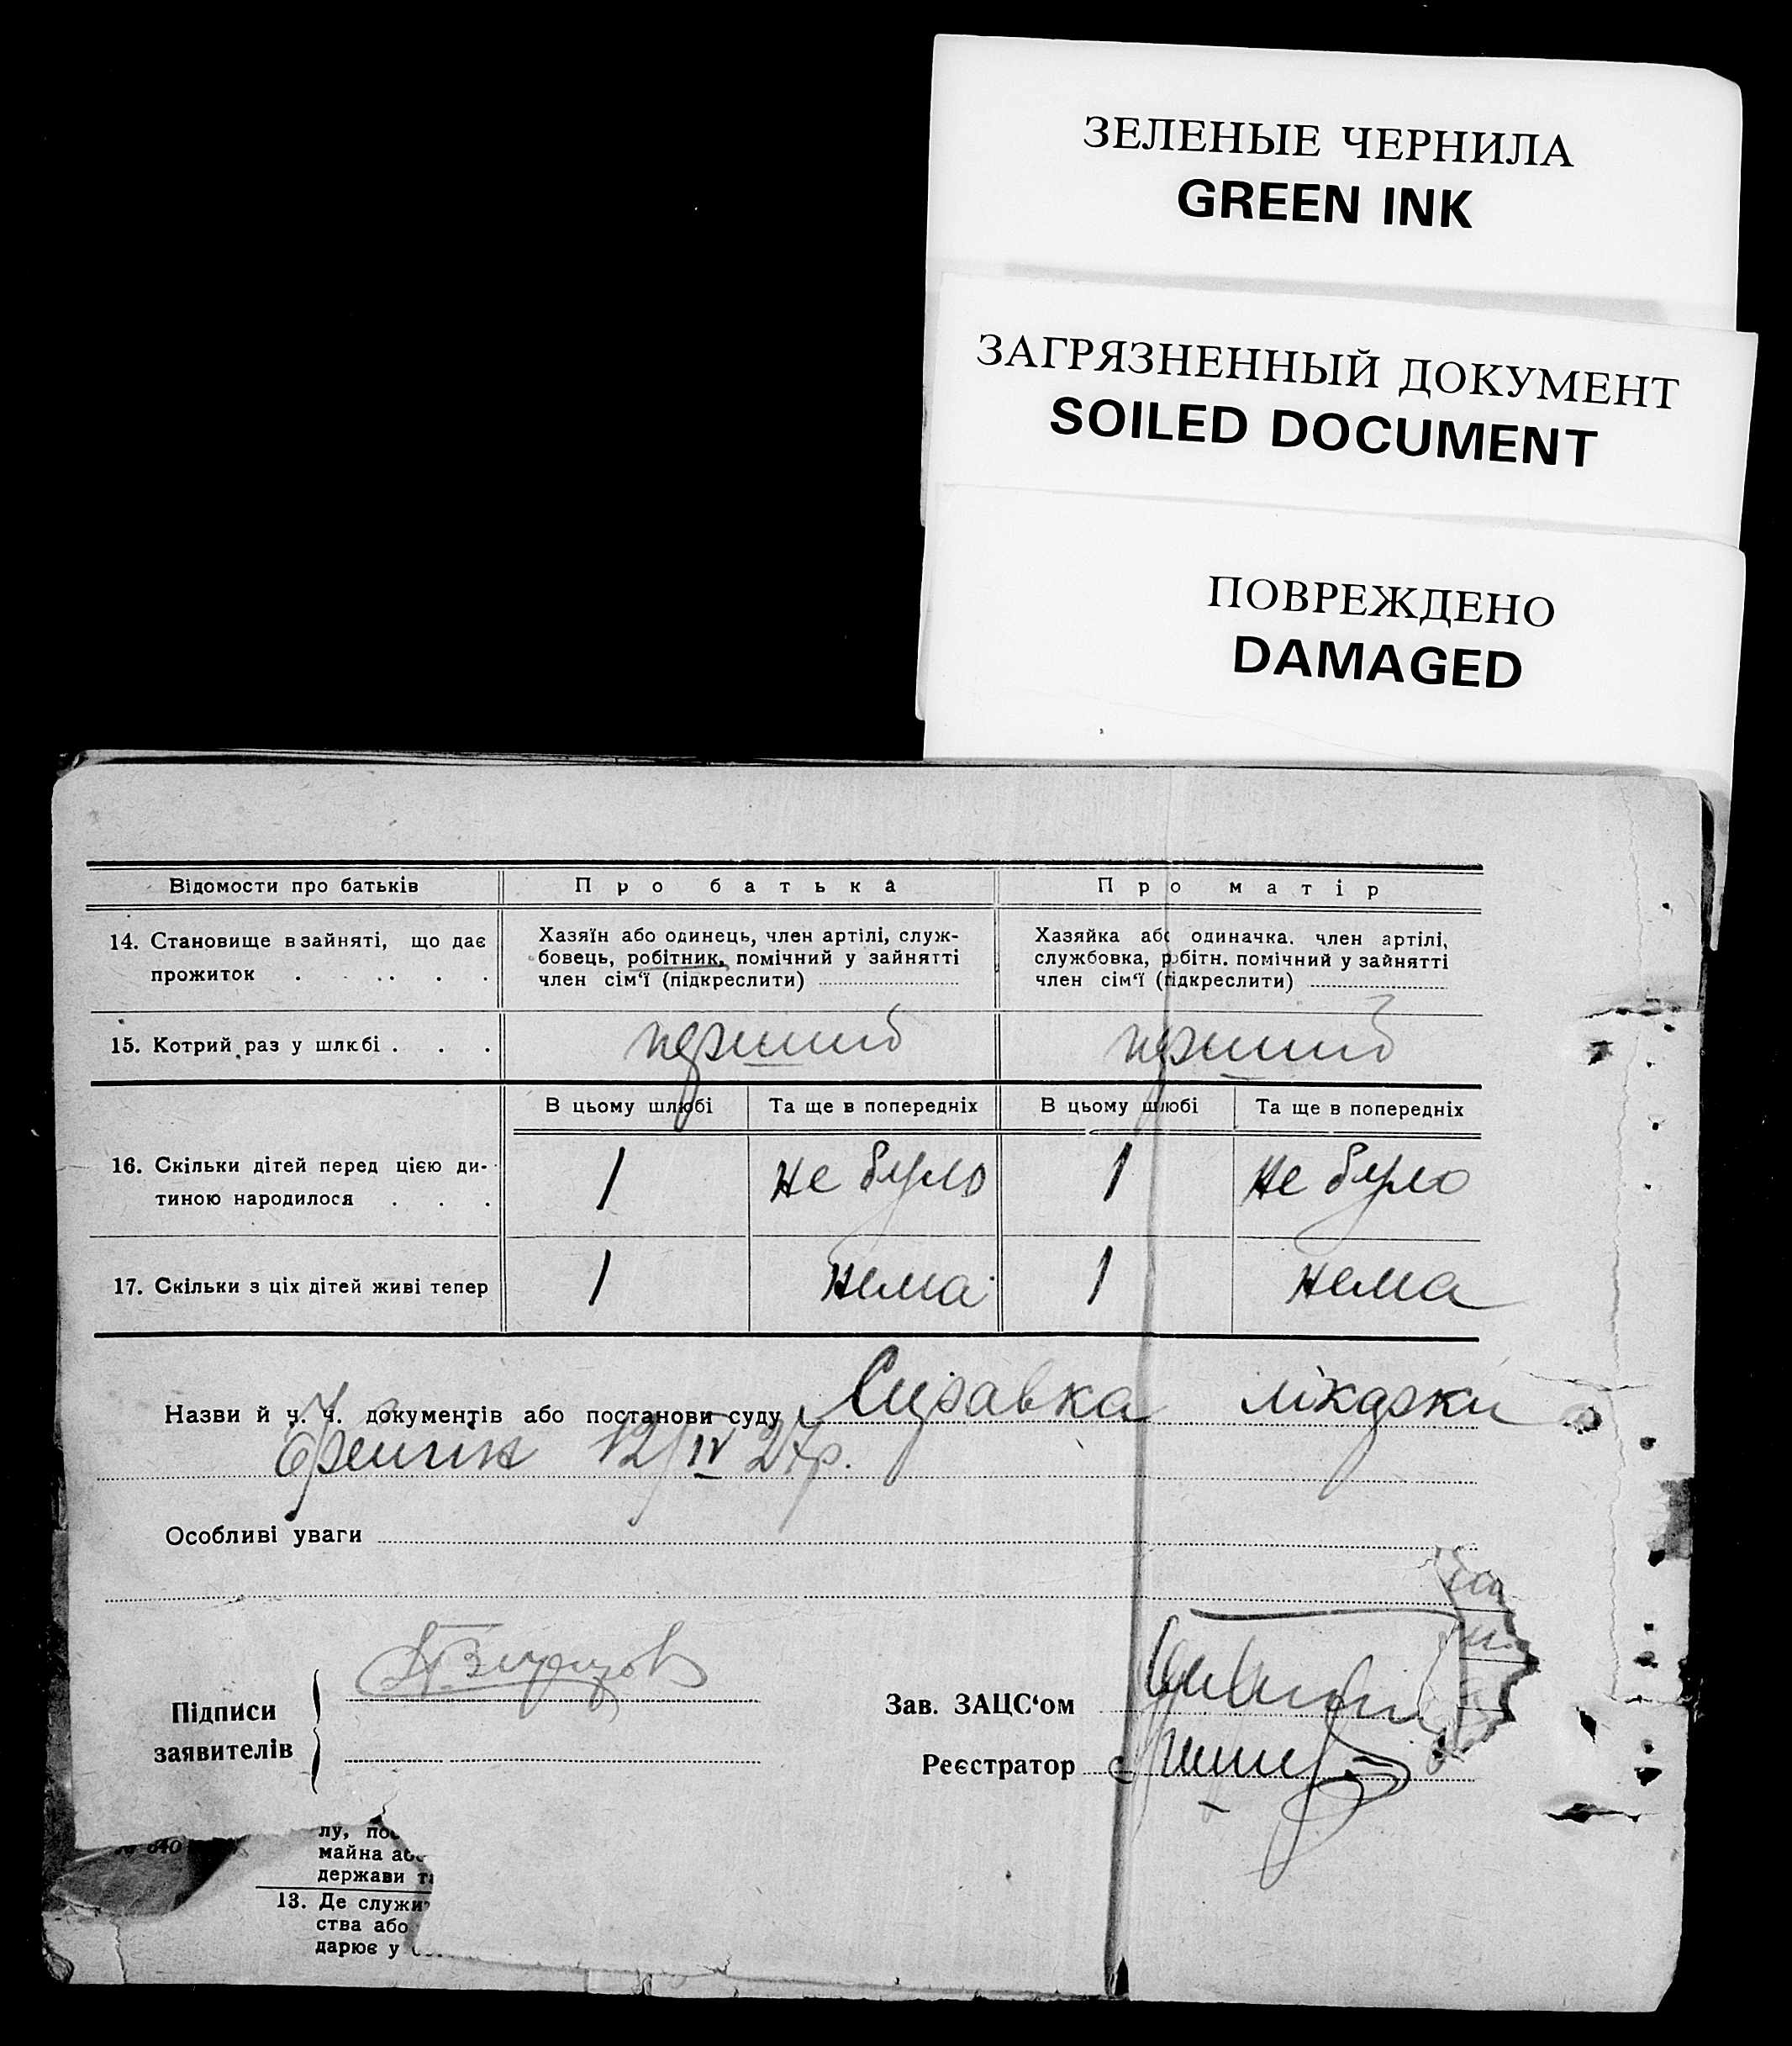 ЗЕЛЕНЫЕ ЧЕРНИЛА
GREEN INK
ЗАГРЯЗНЕННЫЙ ДОКУМЕНТ
SOILED DOCUMENT
ПОВРЕЖДЕНО
DAMAGED
Відомости про батьків Про батька Про матір
14. Становище в зайняті, що дає
прожиток . . . . .
Хазяїн або одинець, член артілі, служ-
бовець, робітник, помічний у зайнятті
член сім‘ї (підкреслити)
Хазяйка або одиначка. член артілі,
службовка, робітн. помічний у зайнятті
член сім‘ї (підкреслити)
15. Котрий раз у шлюбі . . . перший перший
В цьому шлюбі Та ще в попередніх В цьому шлюбі Та ще в попередніх
16. Скільки дітей перед цією ди-
тиною народилося . . .
1 не було 1 не було
17. Скільки з ціх дітей живі тепер 1 нема 1 нема
Назви й ч. ч. документів або постанови суду Справка лікарки
12/IV 27р.
Особливі уваги
Підписи
заявителів
Зав. ЗАЦС‘ом
Реєстратор
№ 640
лу, по
майна або
держави т
13. Де служи
ства або
дарює у